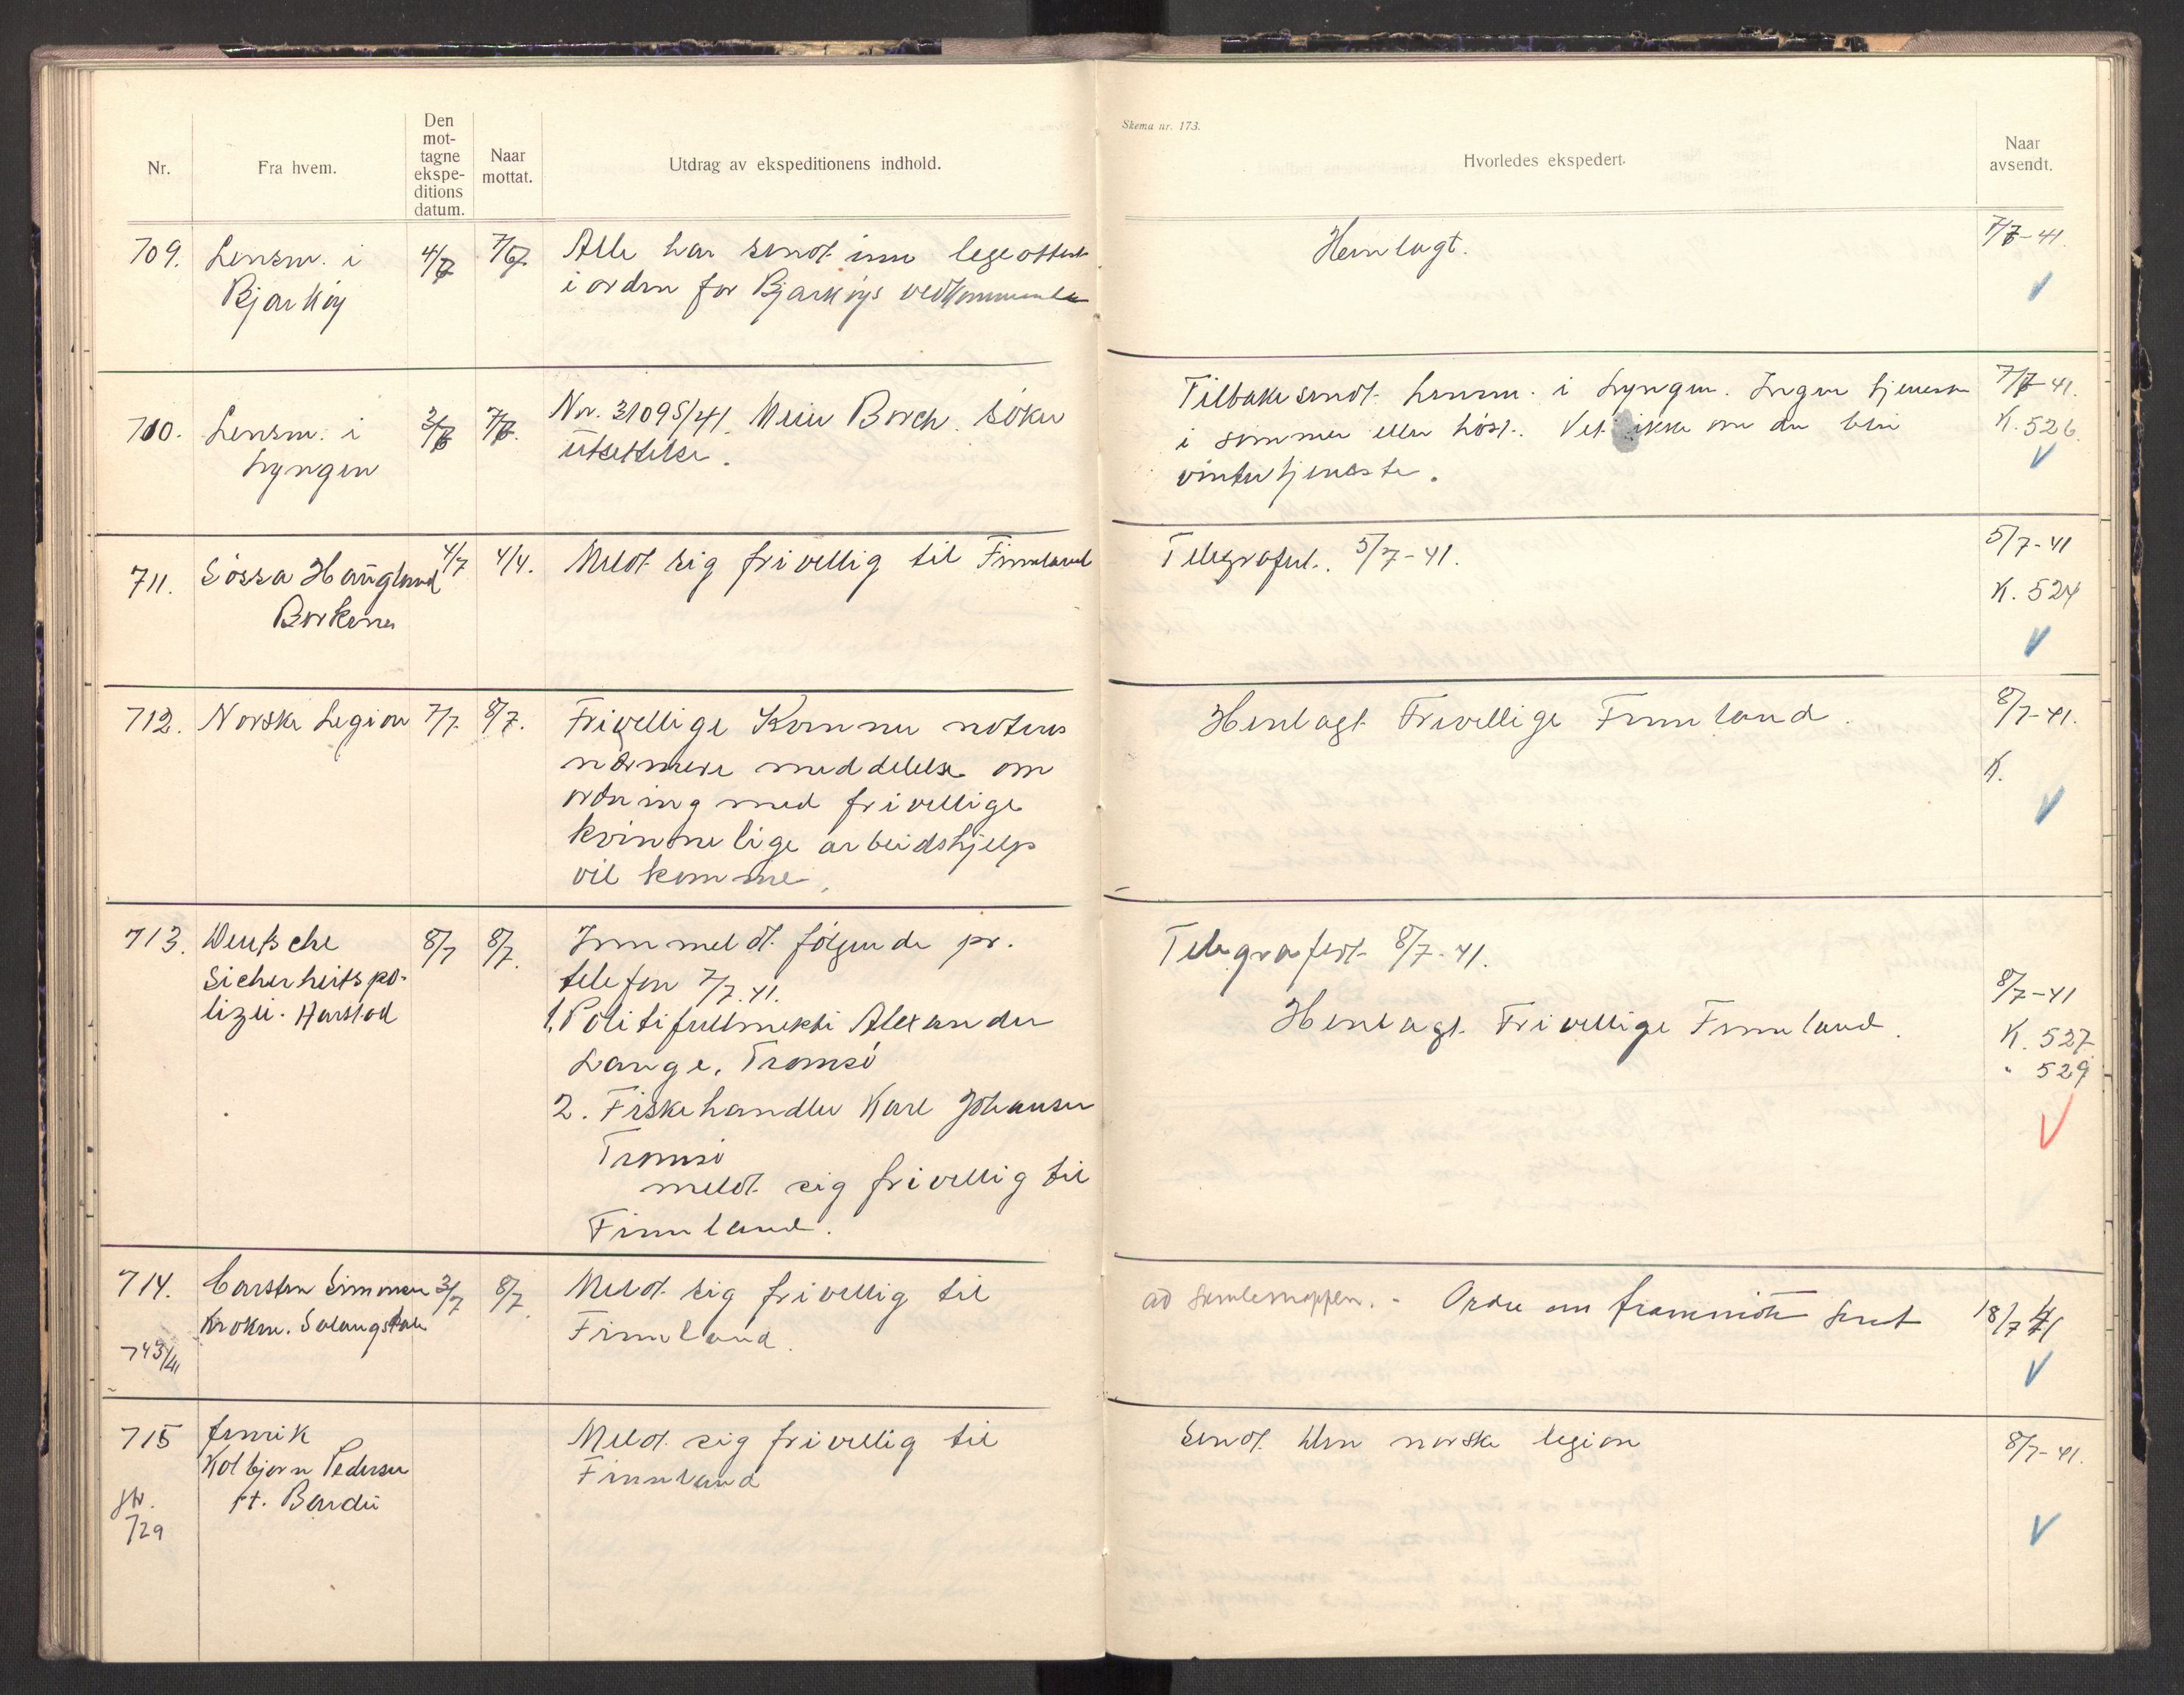 Nr.
Fra hvem.
Den
mot-
tagne
ekspe-
ditions
datum.
Naar
mottat.
Utdrag av ekspeditionens indhold.
Skema nr. 173.
Hvorledes ekspedert.
Naar
avsendt.
709. Lensm. i 4/7 7/7 Alle har sendt inn legeattest
Bjarköy i orden for Bjarköys vedkommende
Henlagt. 7/7-41.
710. Lensm. i 3/7 7/7. Nr. 31095/41. Meier Borch. söker
Lyngen utsettelse.
Tilbakesendt lensm. i Lyngen. Ingen tjeneste 7/7-41.
i sommer eller höst. Vet ikke om det blir K. 526.
vintertjeneste.
711. Sössa Haugland 4/7 4/4. Meldt sig frivillig til Finnland
Borkenes
Telegrafert. 5/7-41. 5/7-41
K. 524
712. Norske Legion 7/7. 8/7. Frivillige Kommer notens
nærmere meddelelse om
ordning med frivillige
kvinnelige arbeidshjelp
vil komme.
Henlagt Frivillige Finnland. 8/7-41.
K.
713. Deutsche 8/7 8/7. Innmeldt følgende pr.
Sicherheitspo- telefon 7/7.41.
lizei. Harstad 1. Politifullmekti Alexander
Lange, Tromsö
2. Fiskehandler Karl Johansen
Tromsö
meldt sig frivillig til
Finnland.
Telegrafert 8/7-41.
8/7-41
Henlagt Frivillige Finnland. K. 527
" 529
714. Carsten Simonsen 3/7 8/7 Meldt sig frivillig til
Krokem. Salangsdalen Finnland.
743/41
ad samlemappen. - Ordre om frammöte sent 18/7 41
715 Fenrik Meldt sig frivillig til
Kolbjørn Pedersen Finnland
jfr. st. Bardu
729
Sendt Den norske legion 8/7-41.